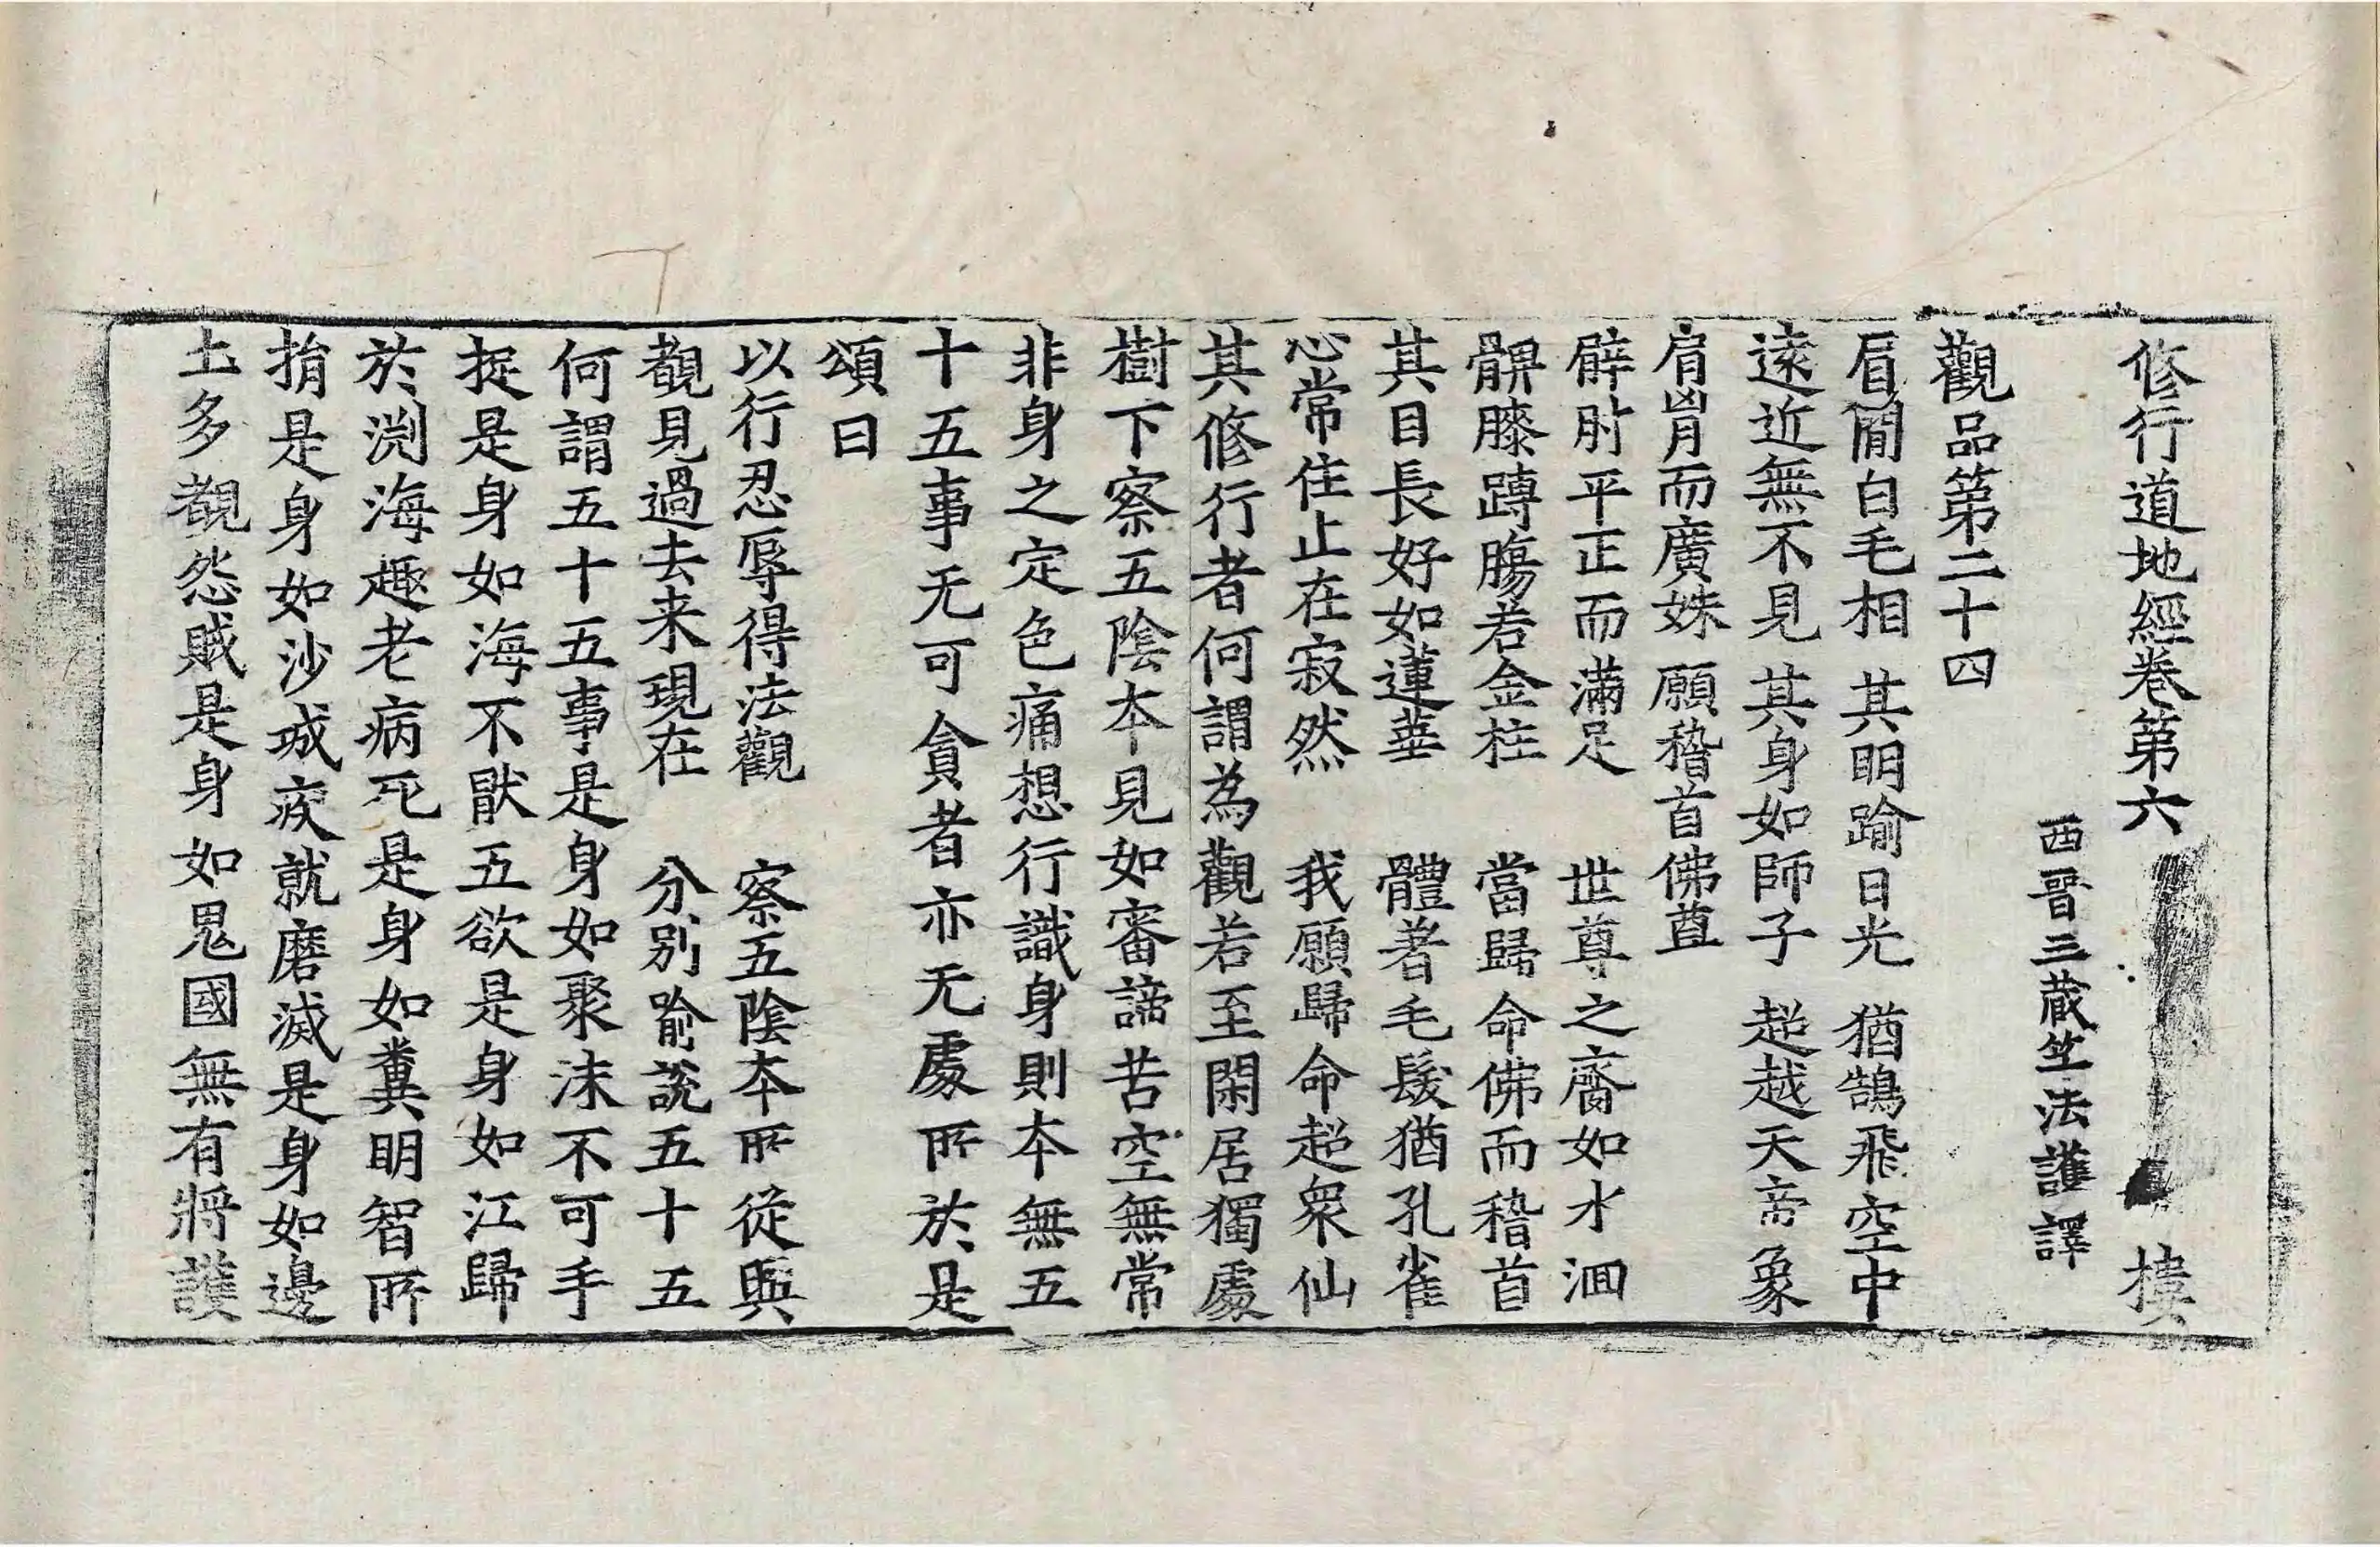 修行道地經卷第六
西晉三藏竺法護譯
觀品第二十四
眉閒白毛相 其明踰日光 猶鵠飛空中
遠近無不見 其身如師子 超越天帝象
肩𦙄而廣姝 願稽首佛尊
臂肘平正而滿足 世尊之齎如水洄
髀膝蹲腸若金柱 當歸命佛而稽首
其目長好如蓮華 體著毛髮猶孔雀
心常住止在寂然 我願歸命超眾仙
其修行者何謂為觀若至閑居獨處
樹下察五陰本見如審諦苦空無常
非身之定色痛想行識身則本無五
十五事无可貪者亦无處所於是
頌曰
以行忍辱得法觀 察五陰本所從興
覩見過去来現在 分別喻說五十五
何謂五十五事是身如聚沫不可手
捉是身如海不猒五欲是身如江歸
於淵海趣老病死是身如糞明智所
捐是身如沙城疾就磨滅是身如邊
土多覩怨賊是身如鬼國無有將護